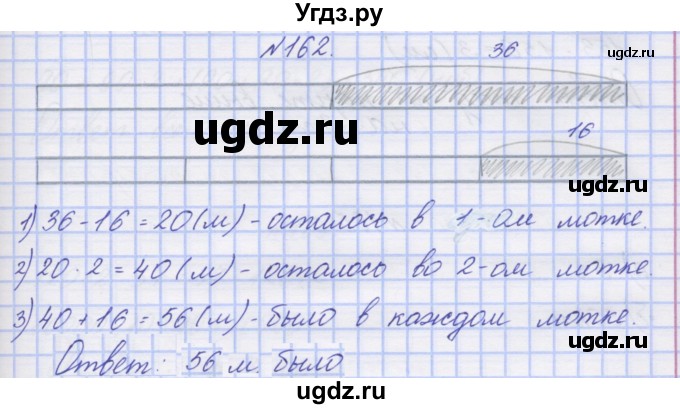 Угдз.ру
№162.
36
ugdz.ru
ugdz.ru
16
ugdz.ru
1) 36 - 16 = 20 (м) - осталось в 1-ом мотке.
2) 20 · 2 = 40 (м) - осталось во 2-ом мотке.
3) 40 + 16 = 56 (м) - было в каждом мотке.
Ответ: 56 м. было
ugdz.ru
ugdz.ru
ugdz.ru